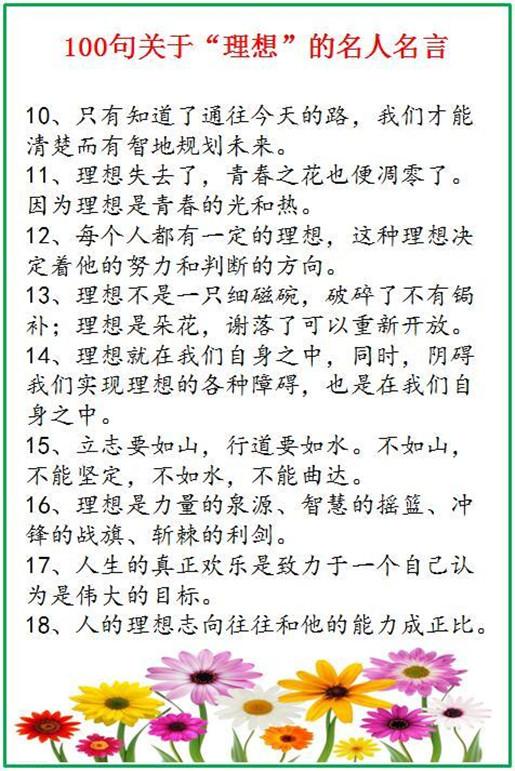 100句关于“理想”的名人名言
10、只有知道了通往今天的路，我们才能
清楚而有智地规划未来。
11、理想失去了，青春之花也便凋零了。
因为理想是青春的光和热。
12、每个人都有一定的理想，这种理想决
定着他的努力和判断的方向。
13、理想不是一只细磁碗，破碎了不有锔
补；理想是朵花，谢落了可以重新开放。
14、理想就在我们自身之中，同时，阴碍
我们实现理想的各种障碍，也是在我们自
身之中。
15、立志要如山，行道要如水。不如山，
不能坚定，不如水，不能曲达。
16、理想是力量的泉源、智慧的摇篮、冲
锋的战旗、斩棘的利剑。
17、人生的真正欢乐是致力于一个自己认
为是伟大的目标。
18、人的理想志向往往和他的能力成正比。